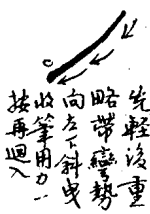 先輕後重
略帶彎勢
向左下斜曳
收筆用力
按再迴入